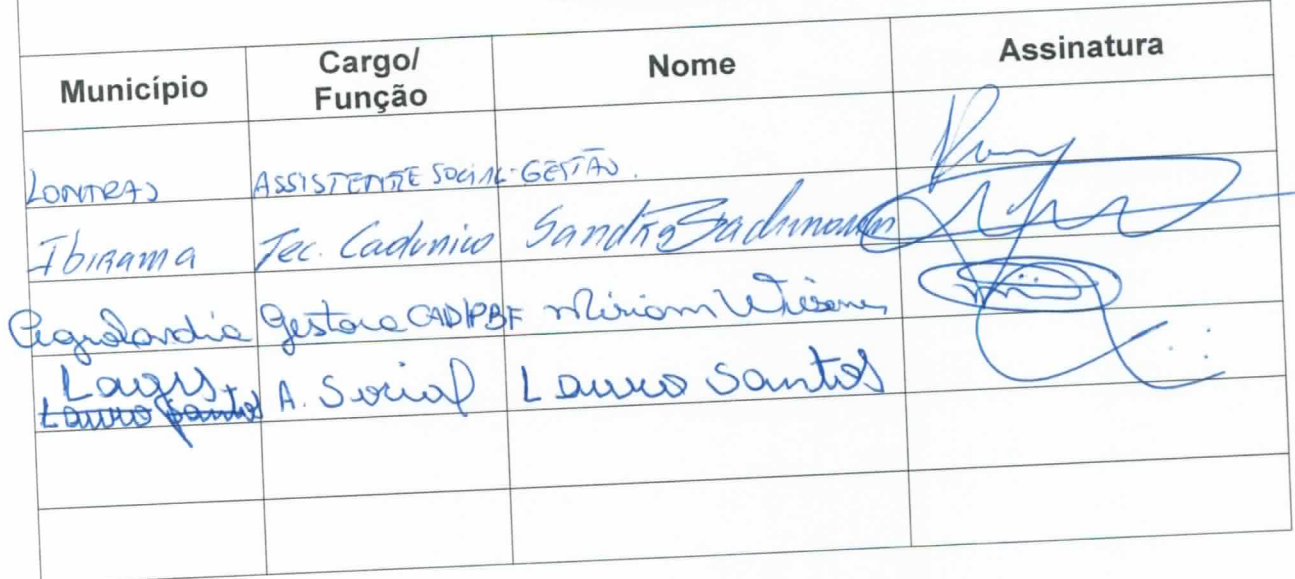 Município Cargo/ Função Nome Assinatura
LONTRAS ASSISTENTE SOCIAL-GESTÃO.
Ibirama Tec. Cadunico Sandra
Agrolandia Gestora CAD/PBF Miriam
Lages A. Social Lauro Santos
Lauro Santos